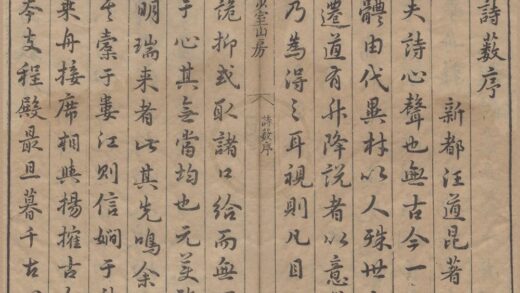 詩藪序
新都汪道昆著
夫詩心聲也無古今一
體由代異材以人殊世
遷道有升降説者以意
乃為得之耳視則凡目
室山房
詩藪序
詭抑或取諸口給而無
于心其無當均也元美
明瑞来者此其先鳴余
橐于婁江則信嫺于
乘舟接席相與揚搉古
岑支程殿最旦暮千古